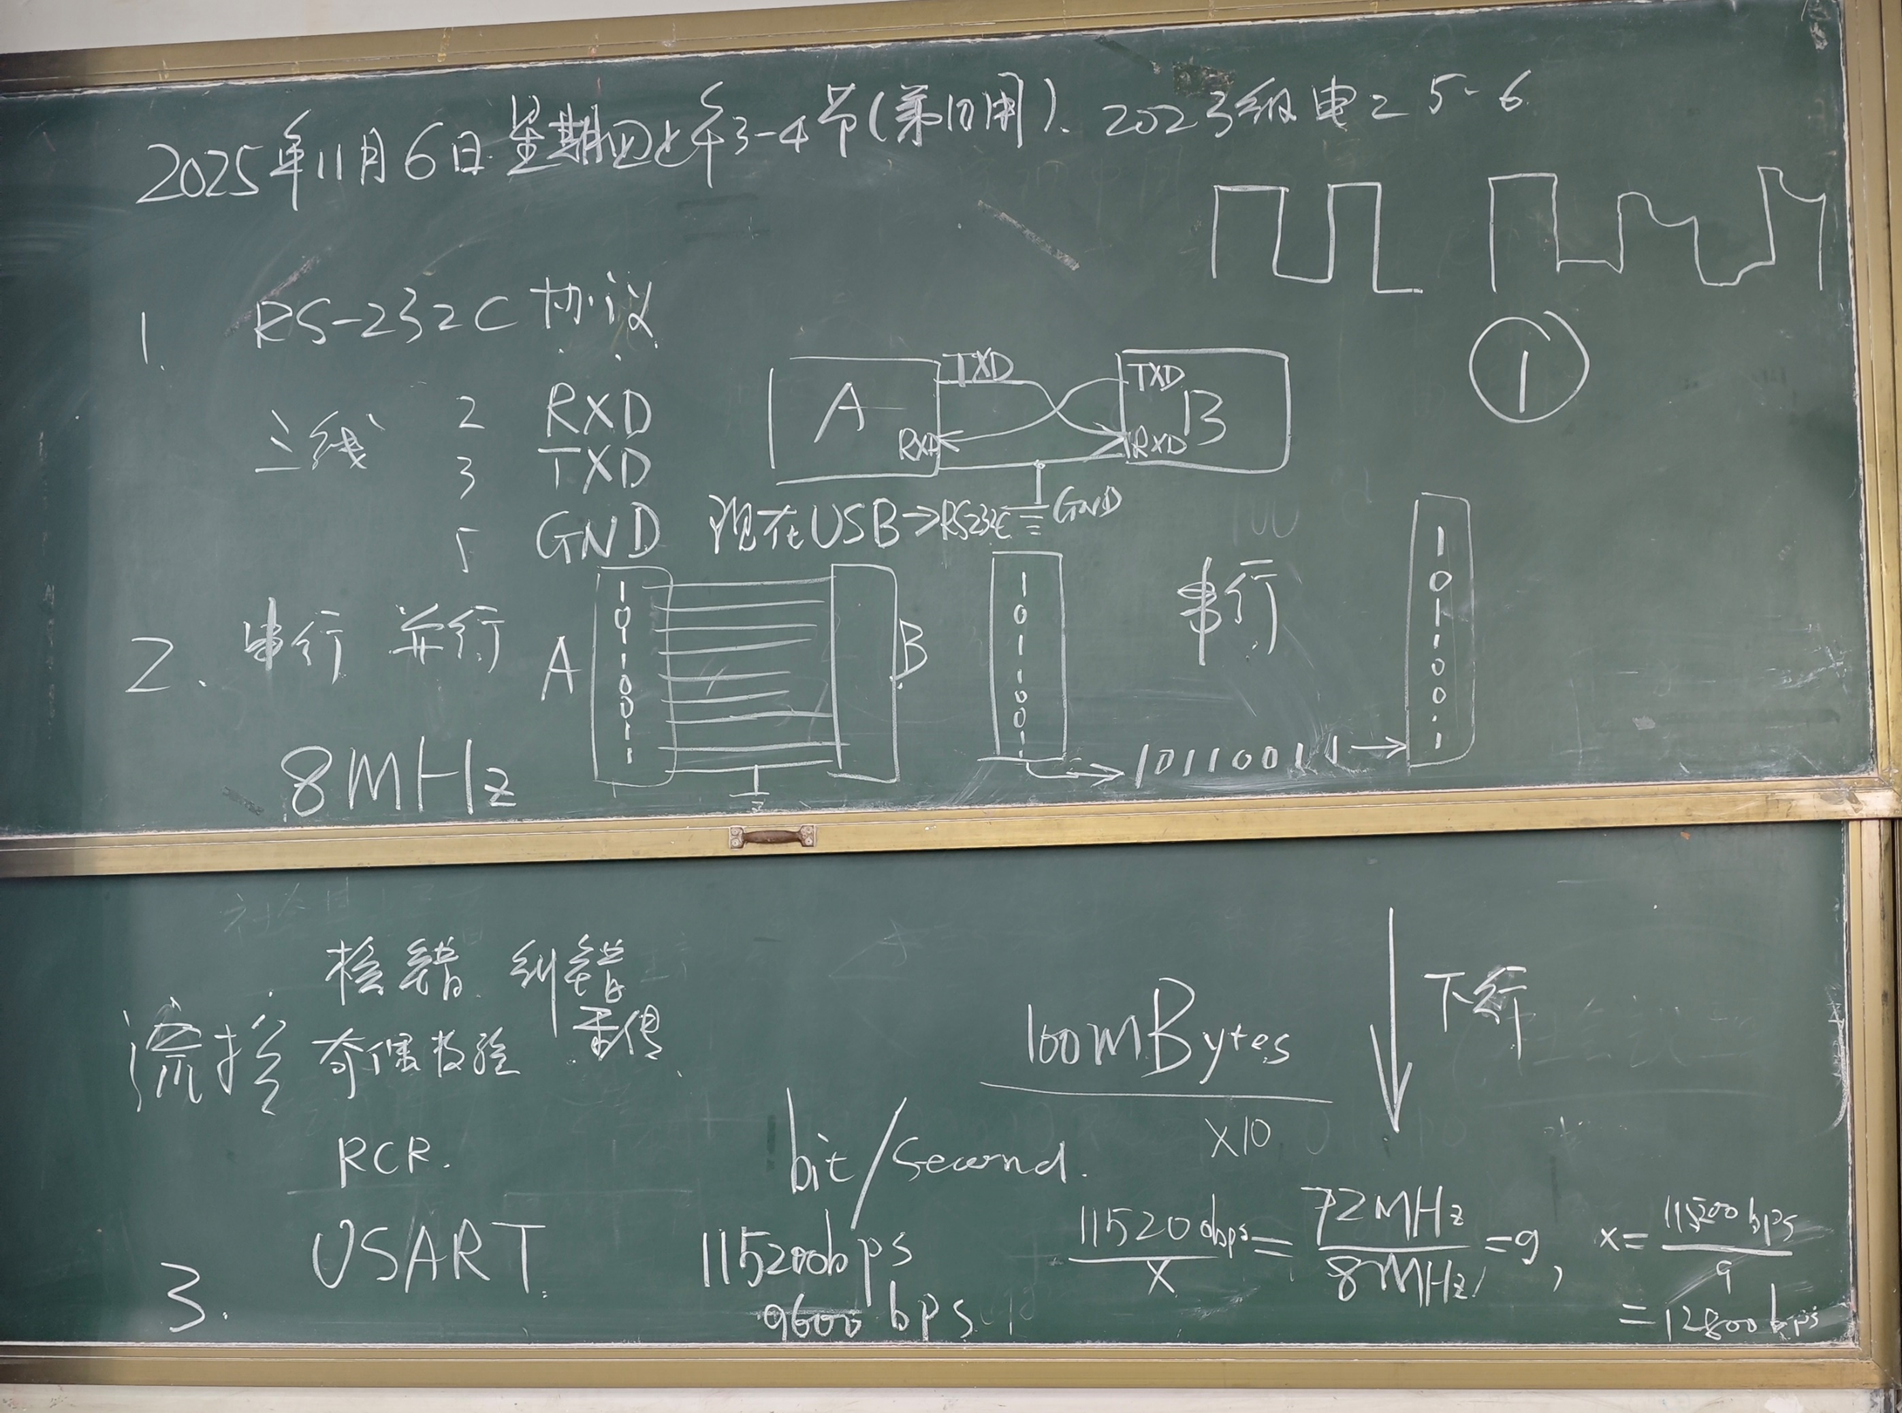 2025年11月6日星期四上午3-4节(第10周).2023级电2 5-6
1. RS-232C协议
三线 2 RXD
3 TXD
5 GND
A TXD RXD
TXD B RXD
GND
现在USB→RS232C
①
2. 串行 并行
A 10110011 B
1011001
串行
10110011→
1011001
8MHz
检错 纠错
重传
流控 奇偶校验
RCR.
100MBytes
×10
下行
bit/Second.
3. USART
115200bps
9600bps
115200bps/X = 72MHz/8MHz = 9, x = 115200bps/9
=12800bps